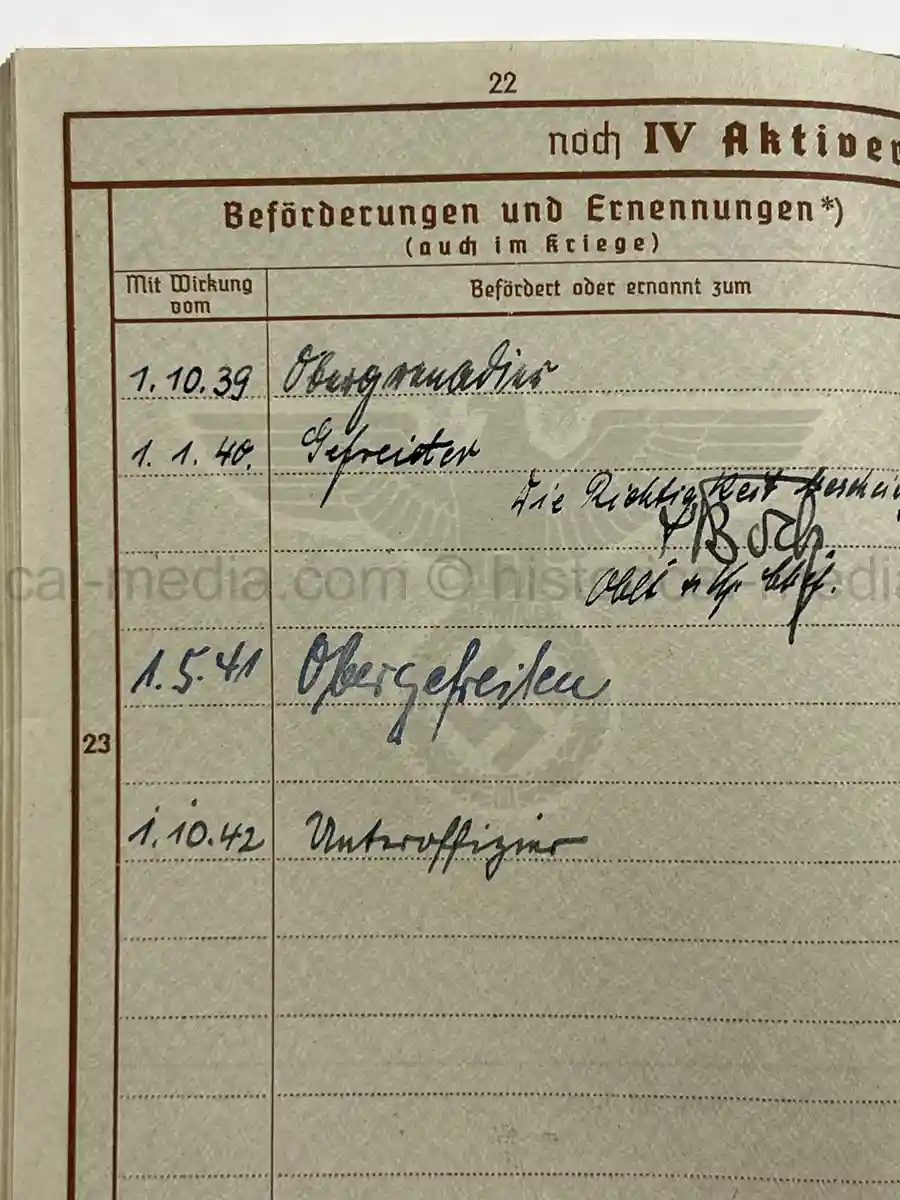 22
noch IV Aktiver
Beförderungen und Ernennungen*)
(auch im Kriege)
Mit Wirkung vom
Befördert oder ernannt zum
1.10.39 Obergrenadier
1.1.40. Gefreiter
Die Richtigkeit beschei
Boch
cal-media.com © historical-media
1.5.41 Obergefreiten
23
1.10.42 Unteroffizier